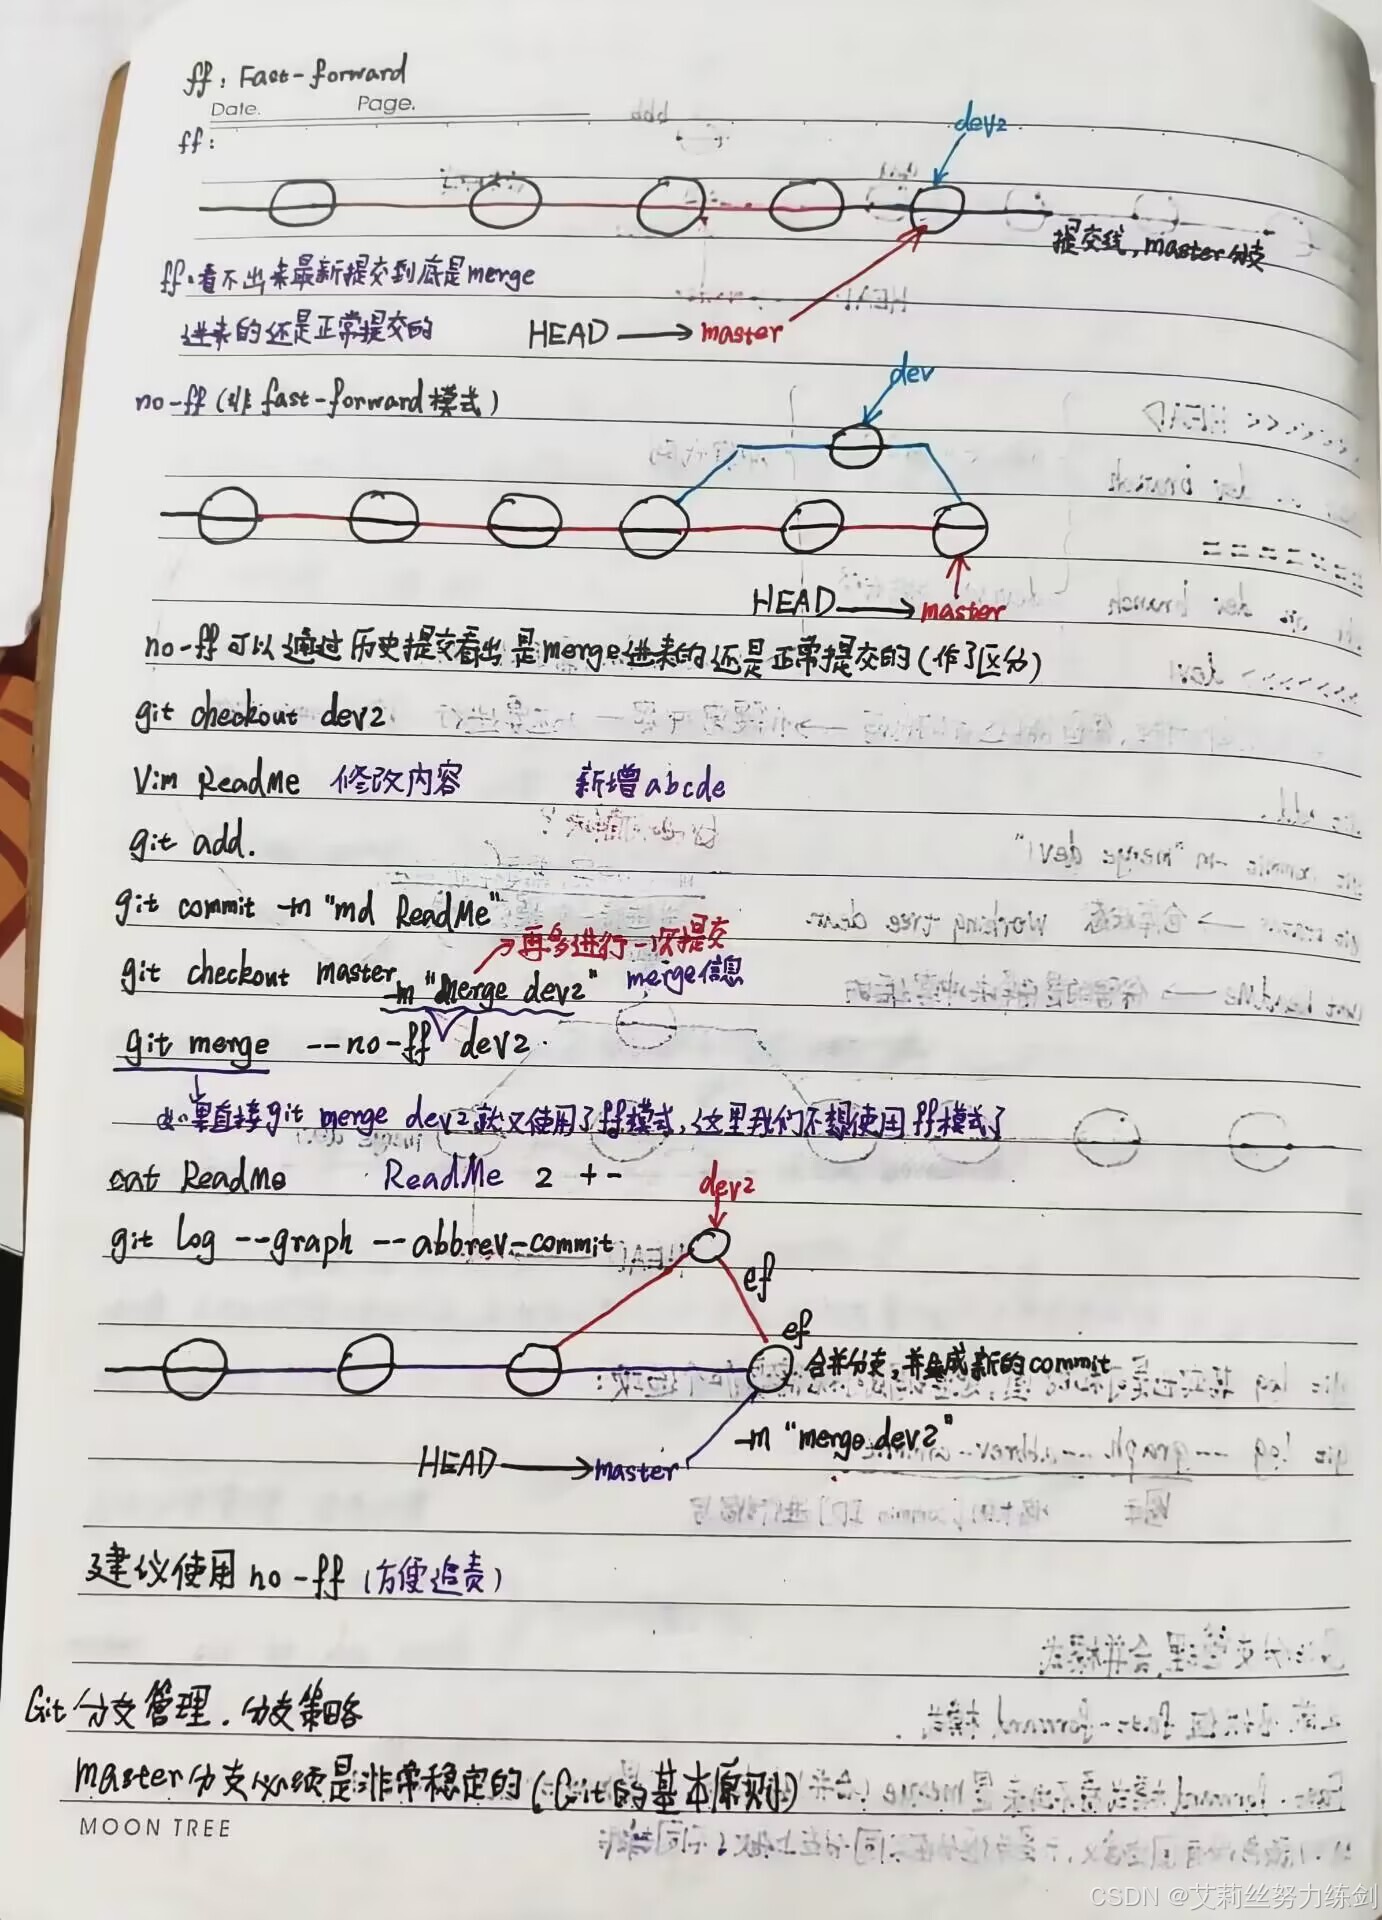 ff: Fast-forward
Date. Page.
ff:
dev2
提交线, master分支
ff:看不出来最新提交到底是merge
进来的还是正常提交的
HEAD → master
dev
no-ff (非 fast-forward 模式)
HEAD → master
no-ff 可以通过历史提交看出是merge进来的还是正常提交的 (作了区分)
git checkout dev2
Vim ReadMe 修改内容 新增abcde
git add.
git commit -m "md ReadMe"
再多进行一次提交
git checkout master
-m "Merge dev2" merge信息
git merge --no-ff dev2
如果直接git merge dev2就又使用了ff模式, 这里我们不想使用ff模式了
cat ReadMe ReadMe 2 + -
dev2
git log --graph --abbrev-commit
ef
ef
合并分支,并生成新的commit
-m "merge dev2"
HEAD → master
建议使用 no-ff (方便追责)
Git 分支管理. 分支策略
master分支必须是非常稳定的 (Git的基本原则)
MOON TREE
CSDN @艾莉丝努力练剑